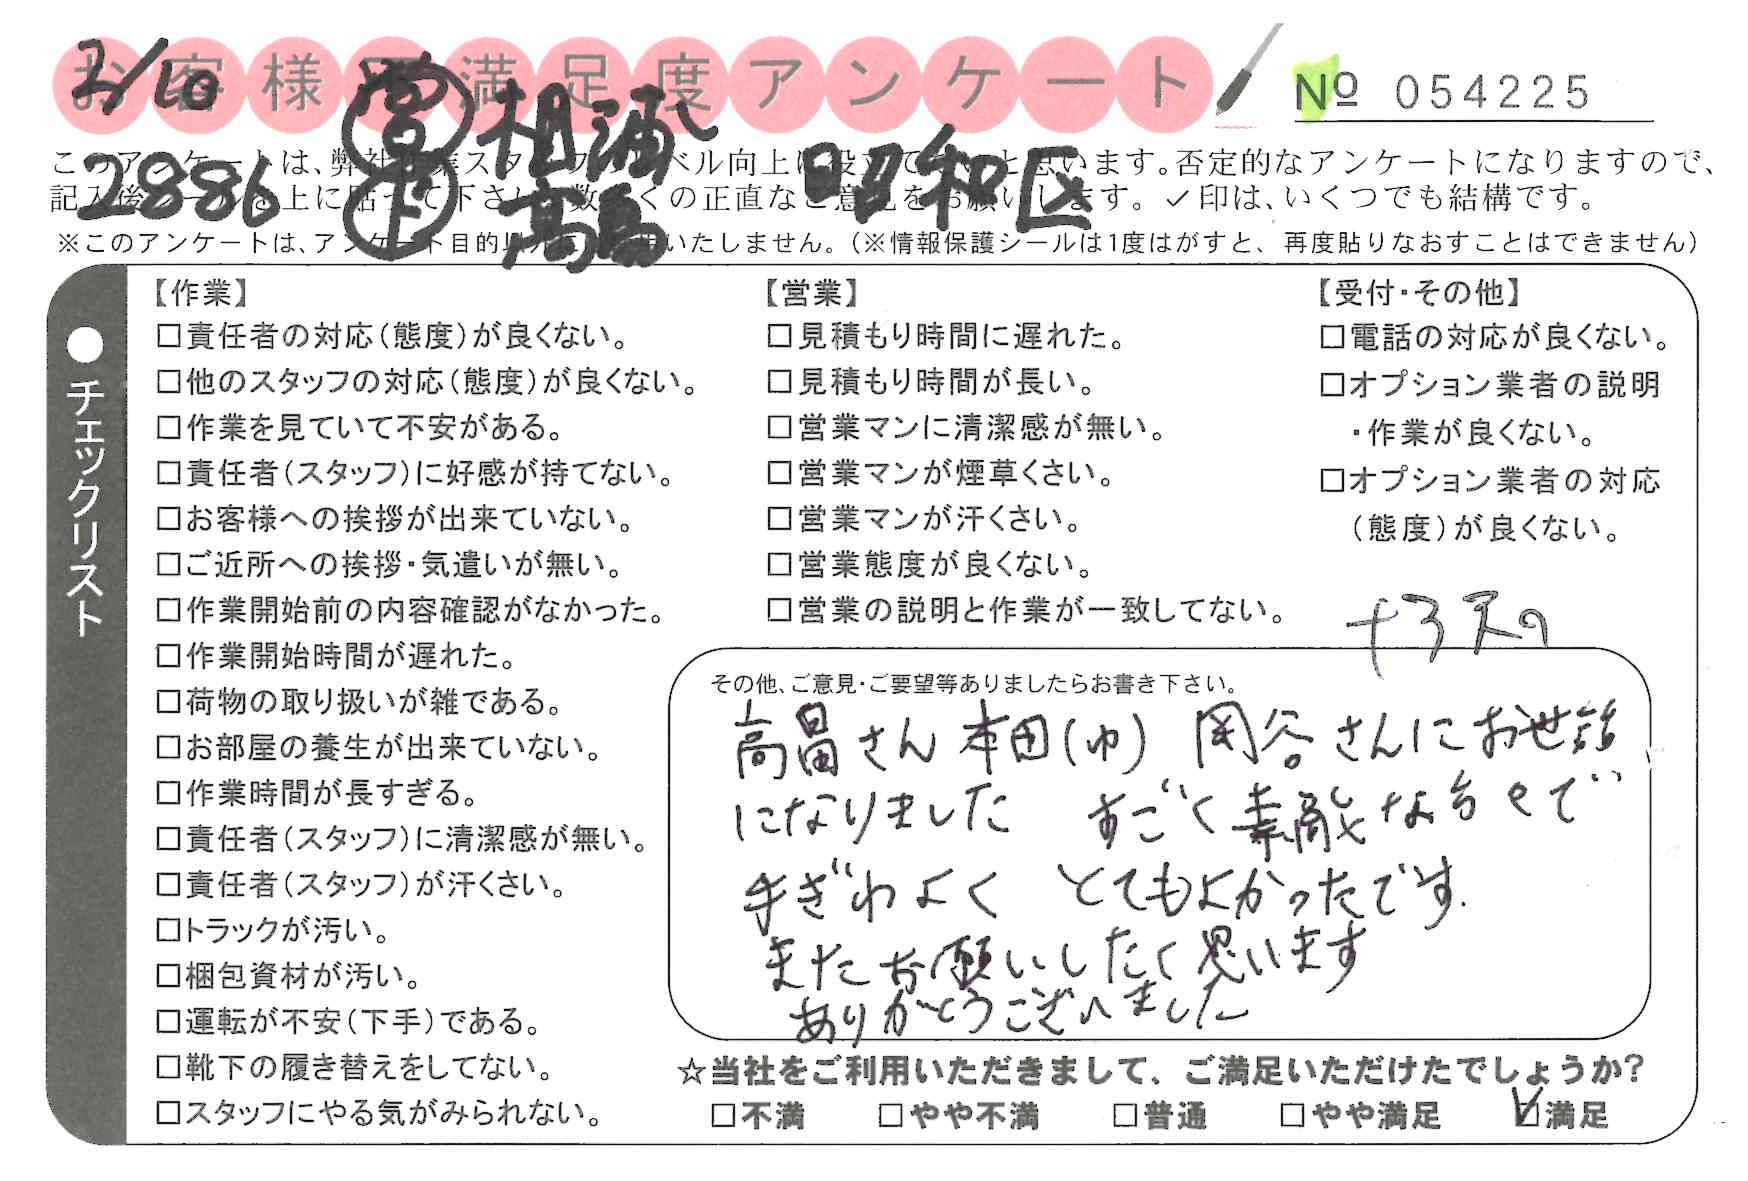 お客様不満足度アンケート
№ 054225
2/10
2886
営 相涌
下 高畠
昭和区
このアンケートは、弊社作業スタッフのレベル向上に役立て と思います。否定的なアンケートになりますので、
記入後シールを上に貼って下さい。数多くの正直なご意見をお願いします。✓印は、いくつでも結構です。
※このアンケートは、アンケート目的以外に いたしません。(※情報保護シールは1度はがすと、再度貼りなおすことはできません)
●チェックリスト
【作業】
□責任者の対応(態度)が良くない。
□他のスタッフの対応(態度)が良くない。
□作業を見ていて不安がある。
□責任者(スタッフ)に好感が持てない。
□お客様への挨拶が出来ていない。
□ご近所への挨拶・気遣いが無い。
□作業開始前の内容確認がなかった。
□作業開始時間が遅れた。
□荷物の取り扱いが雑である。
□お部屋の養生が出来ていない。
□作業時間が長すぎる。
□責任者(スタッフ)に清潔感が無い。
□責任者(スタッフ)が汗くさい。
□トラックが汚い。
□梱包資材が汚い。
□運転が不安(下手)である。
□靴下の履き替えをしてない。
□スタッフにやる気がみられない。
【営業】
□見積もり時間に遅れた。
□見積もり時間が長い。
□営業マンに清潔感が無い。
□営業マンが煙草くさい。
□営業マンが汗くさい。
□営業態度が良くない。
□営業の説明と作業が一致してない。
【受付・その他】
□電話の対応が良くない。
□オプション業者の説明
・作業が良くない。
□オプション業者の対応
(態度)が良くない。
その他、ご意見・ご要望等ありましたらお書き下さい。
高畠さん 本田(ゆ) 岡谷さんにお世話
になりました すごく素敵な方々で
手ぎわよく とてもよかったです.
またお願いしたく思います
ありがとうございました
☆当社をご利用いただきまして、ご満足いただけたでしょうか?
□不満 □やや不満 □普通 □やや満足 ☑満足